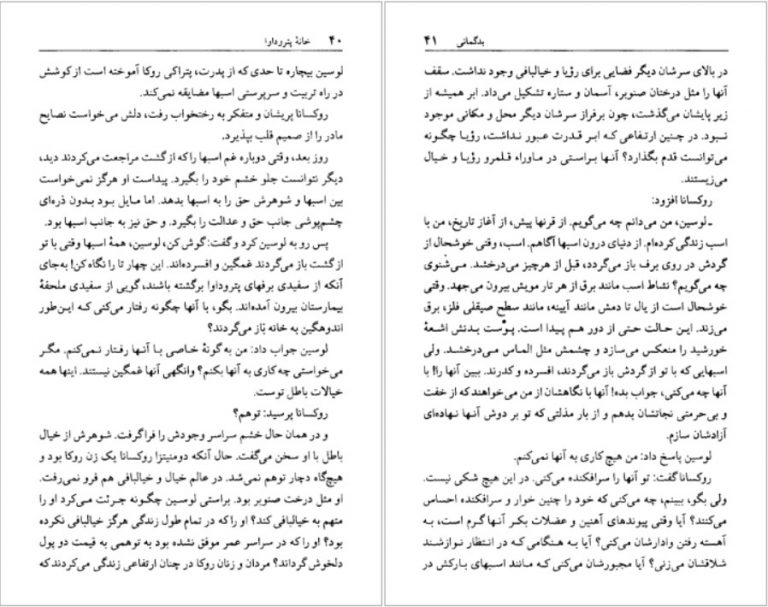 ۴۰ خانهٔ پترو‌داوا
لوسین بیچاره تا حدی که از پدرت، پتراکی روکا آموخته است از کوشش
در راه تربیت و سرپرستی اسبها مضایقه نمی‌کند.
روکسانا پریشان و متفکر به رختخواب رفت، دلش می‌خواست نصایح
مادر را از صمیم قلب بپذیرد.
روز بعد، وقتی دوباره غم اسبها را که از گشت مراجعت می‌کردند دید،
دیگر نتوانست جلو خشم خود را بگیرد. پیداست او هرگز نمی‌خواست
بین اسبها و شوهرش حق را به اسبها بدهد. اما مایل بود بدون ذره‌ای
چشم‌پوشی جانب حق و عدالت را بگیرد. و حق نیز به جانب اسبها بود.
پس رو به لوسین کرد و گفت: گوش کن، لوسین، همهٔ اسبها وقتی با تو
از گشت باز می‌گردند غمگین و افسرده‌اند. این چهار تا را نگاه کن! به‌جای
آنکه از سفیدی برفهای پتروداوا برگشته باشند، گویی از سفیدی ملحفهٔ
بیمارستان بیرون آمده‌اند. بگو، با آنها چگونه رفتار می‌کنی که این‌طور
اندوهگین به خانه باز می‌گردند؟
لوسین جواب داد: من به گونهٔ خاصی با آنها رفتار نمی‌کنم. مگر
می‌خواستی چه کاری به آنها بکنم؟ وانگهی آنها غمگین نیستند. اینها همه
خیالات باطل توست.
روکسانا پرسید: توهم؟
و در همان حال خشم سراسر وجودش را فراگرفت. شوهرش از خیال
باطل با او سخن می‌گفت. حال آنکه دومنیتزا روکسانا یک زن روکا بود و
هیچ‌گاه دچار توهم نمی‌شد. در عالم خیال و خیالبافی هم فرو نمی‌رفت.
او مثل درخت صنوبر بود. براستی لوسین چگونه جرئت می‌کرد او را
متهم به خیالبافی کند؟ او را که در تمام طول زندگی هرگز خیالبافی نکرده
بود؟ او را که در سراسر عمر موفق نشده بود به توهمی به قیمت دو پول
دلخوش گرداند؟ مردان و زنان روکا در چنان ارتفاعی زندگی می‌کردند که
بدگمانی ۴۱
در بالای سرشان دیگر فضایی برای رؤیا و خیالبافی وجود نداشت. سقف
آنها را مثل درختان صنوبر، آسمان و ستاره تشکیل می‌داد. ابر همیشه از
زیر پایشان می‌گذشت، چون برفراز سرشان دیگر محل و مکانی موجود
نبود. در چنین ارتفاعی که ابر قدرت عبور نداشت، رؤیا چگونه
می‌توانست قدم بگذارد؟ آنها براستی در ماوراء قلمرو رؤیا و خیال
می‌زیستند.
روکسانا افزود:
ـ لوسین، من می‌دانم چه می‌گویم. از قرنها پیش، از آغاز تاریخ، من با
اسب زندگی کرده‌ام. از دنیای درون اسبها آگاهم. اسب، وقتی خوشحال از
گردش در روی برف باز می‌گردد، قبل از هرچیز می‌درخشد. می‌شنوی
چه می‌گویم؟ نشاط اسب مانند برق از هر تار مویش بیرون می‌جهد. وقتی
خوشحال است از یال تا دمش مانند آیینه، مانند سطح صیقلی فلز، برق
می‌زند. این حالت حتی از دور هم پیدا است. پوست بدنش اشعهٔ
خورشید را منعکس می‌سازد و چشمش مثل الماس می‌درخشد. ولی
اسبهایی که با تو از گردش باز می‌گردند، افسرده و کدرند. ببین آنها را! با
آنها چه می‌کنی، جواب بده! آنها با نگاهشان از من می‌خواهند که از خفت
و بی‌حرمتی نجاتشان بدهم و از بار مذلتی که تو بر دوش آنها نهاده‌ای
آزادشان سازم.
لوسین پاسخ داد: من هیچ کاری به آنها نمی‌کنم.
روکسانا گفت: تو آنها را سرافکنده می‌کنی. در این هیچ شکی نیست.
ولی بگو، ببینم، چه می‌کنی که خود را چنین خوار و سرافکنده احساس
می‌کنند؟ آیا وقتی پیوندهای آهنین و عضلات بکر آنها گرم است، به
آهسته رفتن وادارشان می‌کنی؟ آیا به هنگامی که در انتظار نوازشند
شلاقشان می‌زنی؟ آیا مجبورشان می‌کنی که مانند اسبهای بارکش در